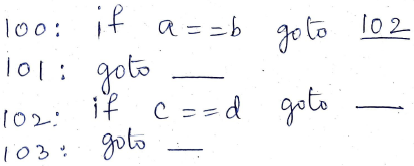 100: if a==b goto 102
101: goto __
102: if c==d goto __
103: goto __